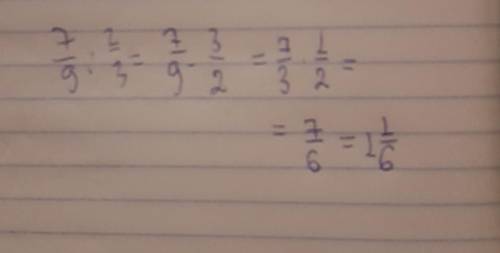 7/9 : 2/3 = 7/9 · 3/2 = 7/3 · 1/2 =
= 7/6 = 1 1/6